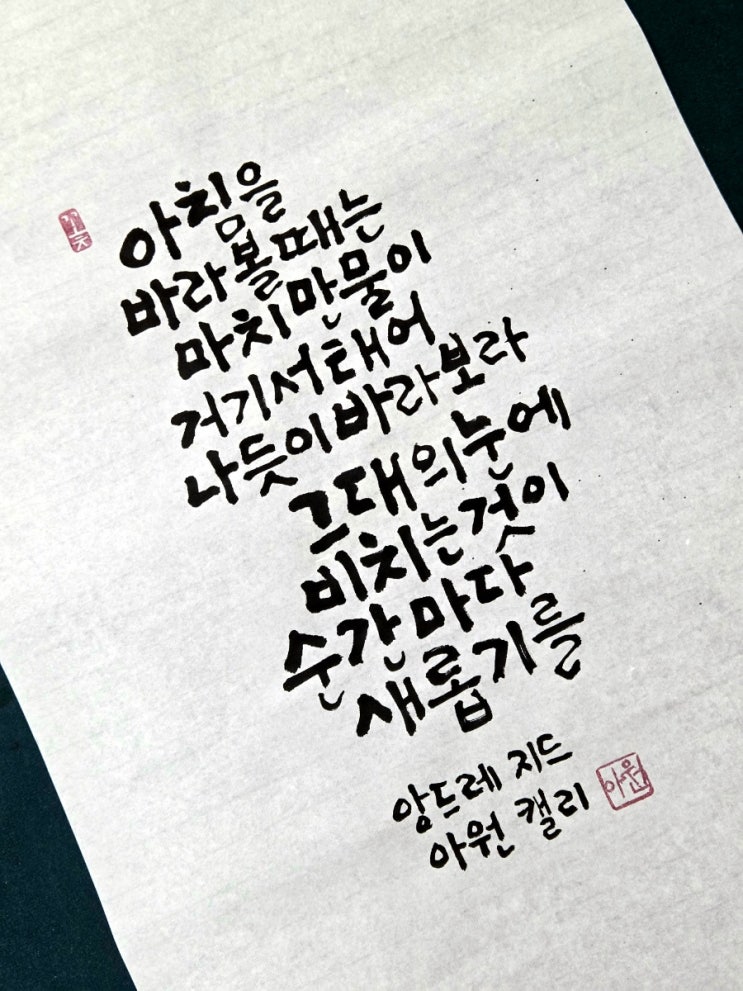 아침을
바라볼때는
마치만물이
거기서태어
나듯이바라보라
그대의눈에
비치는것이
순간마다
새롭기를
앙드레 지드
아원 캘리
아원